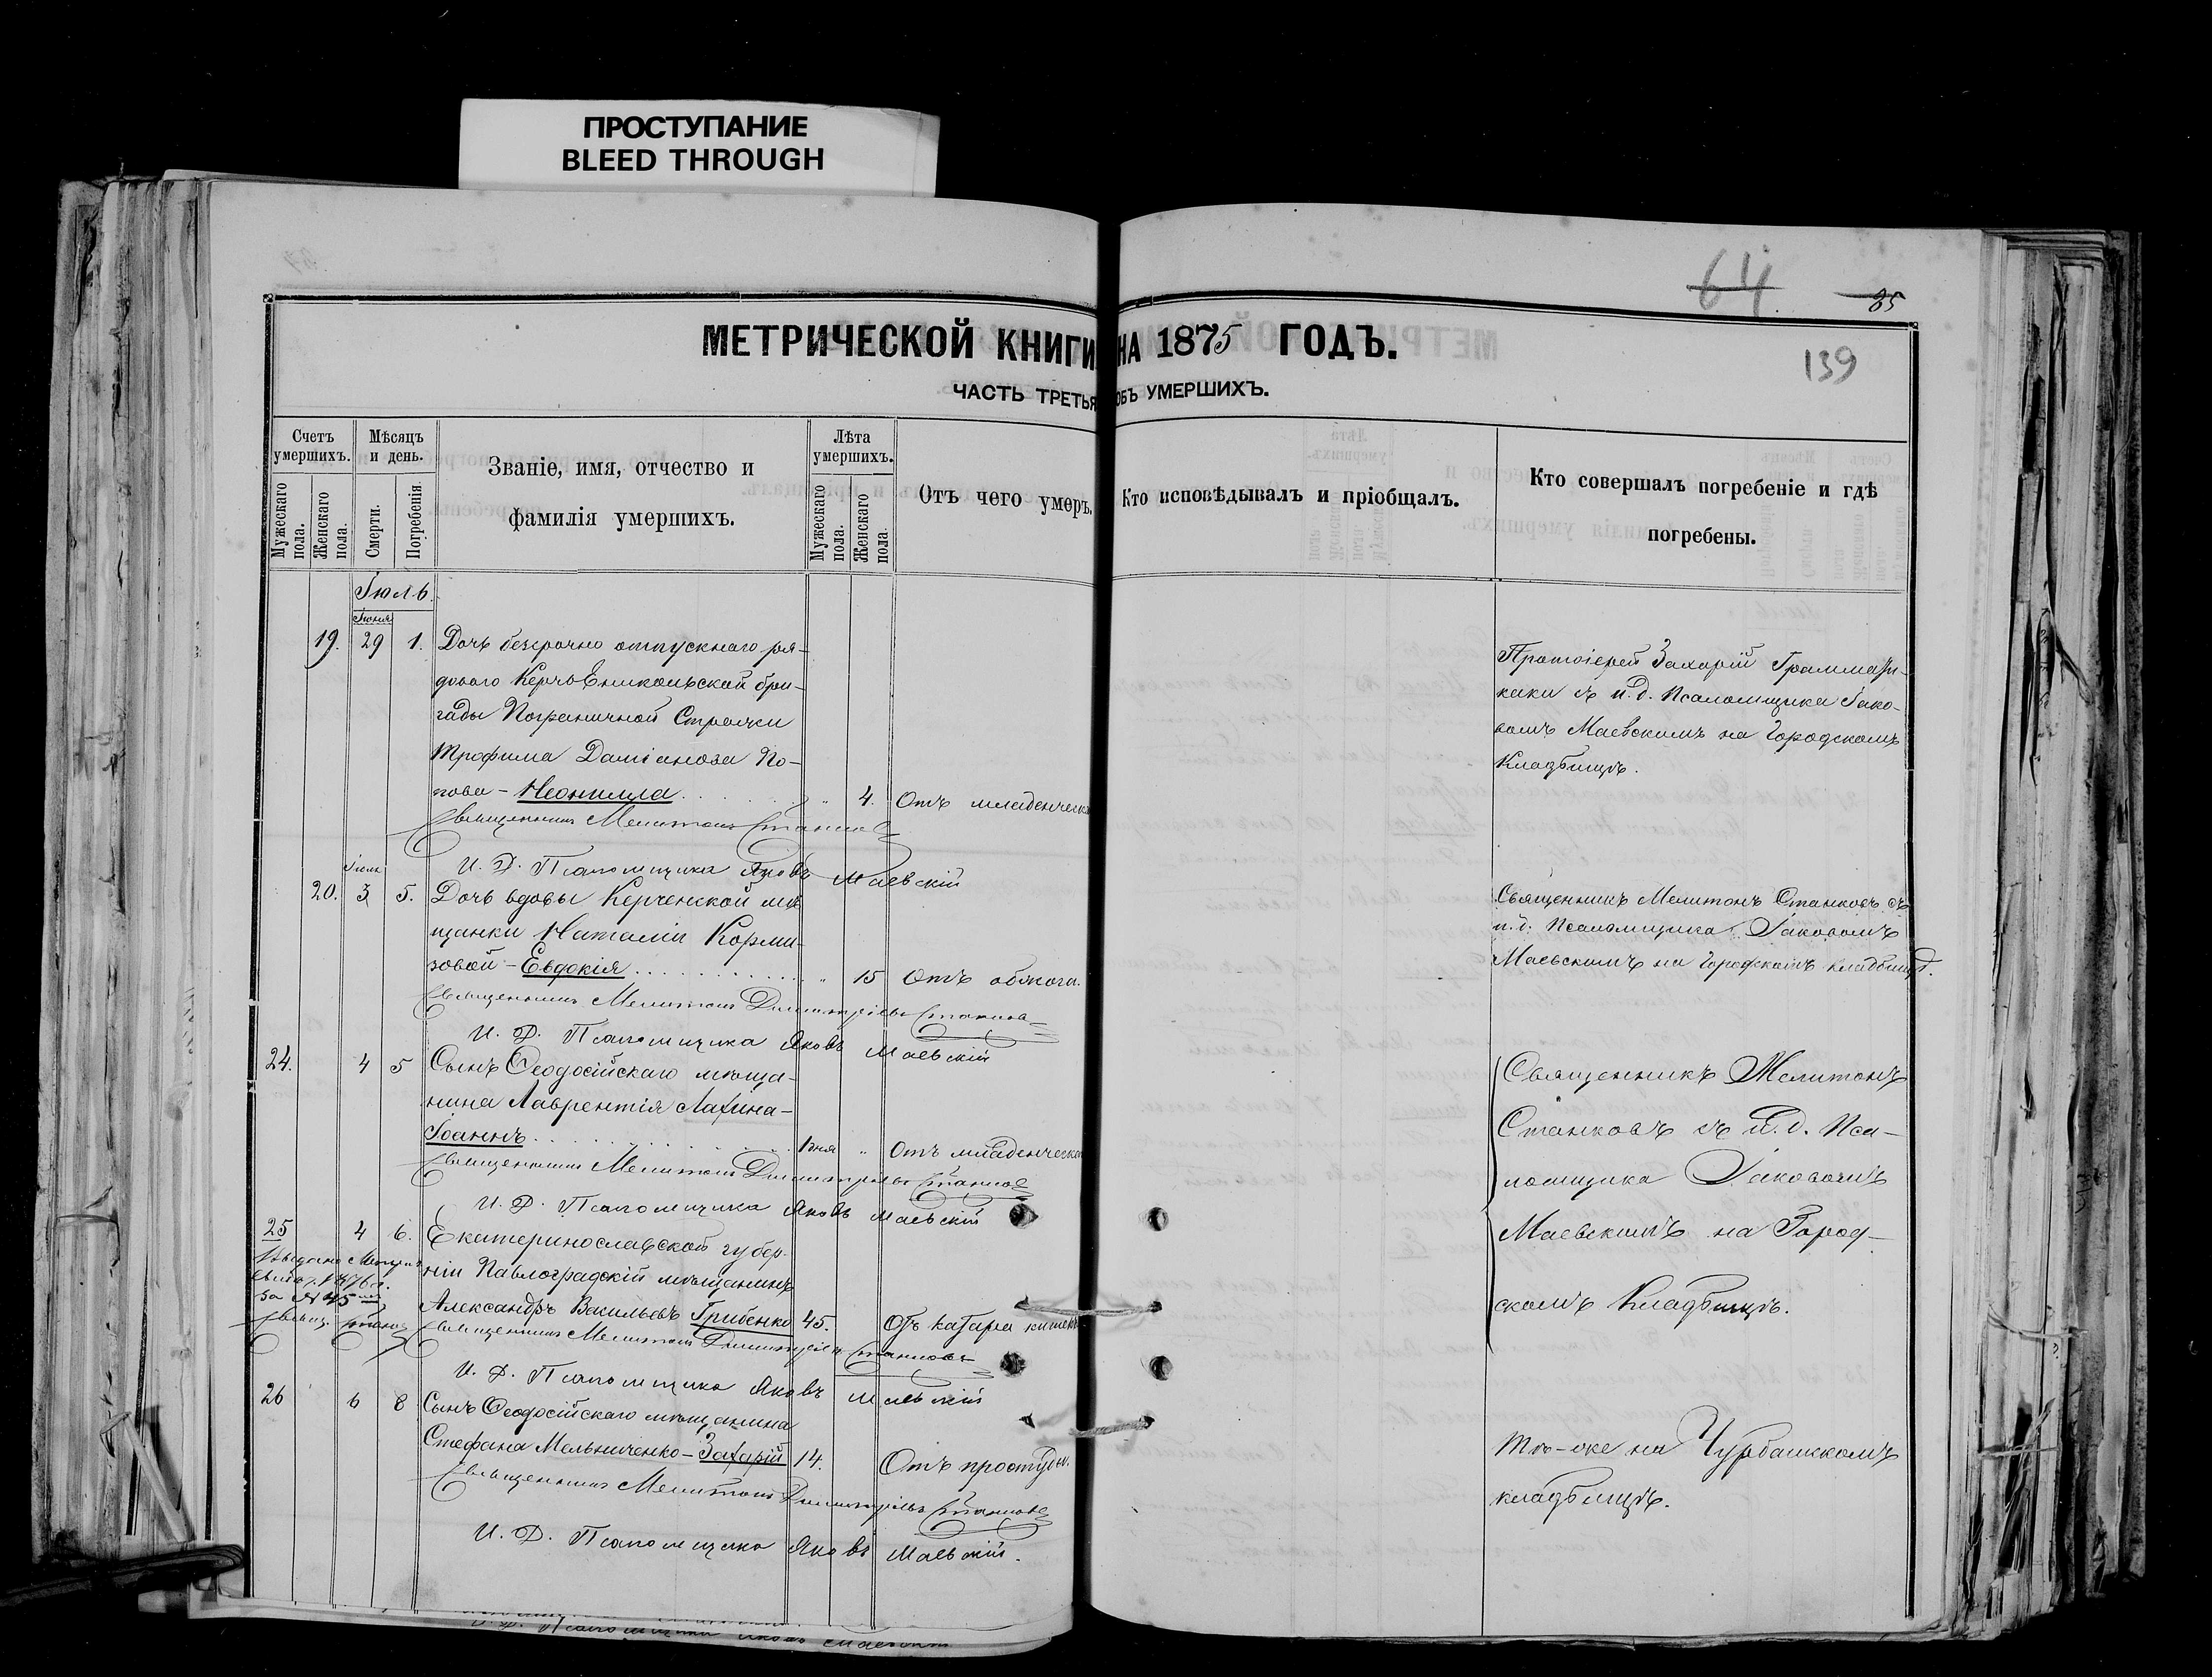 ПРОСТУПАНИЕ
BLEED THROUGH
64
85
139
МЕТРИЧЕСКОЙ КНИГИ НА 1875 ГОДЪ.
ЧАСТЬ ТРЕТЬЯ ОБЪ УМЕРШИХЪ.
Счетъ умершихъ.
Мужескаго пола.
Женскаго пола.
Мѣсяцъ и день.
Смерти.
Погребенія.
Званіе, имя, отчество и
фамилія умершихъ.
Лѣта умершихъ.
Мужескаго пола.
Женскаго пола.
Отъ чего умеръ.
Кто исповѣдывалъ и пріобщалъ.
Кто совершалъ погребеніе и гдѣ
погребены.
Іюль.
Іюня
19. 29 1. Дочь безсрочно отпускнаго ря-
доваго Керчь Еникольской бри-
гады Пограничной Стражи
Трофима Даміанова По-
пова - Неонилла . . . " 4. Отъ младенческ
Протоіерей Захарій Граммати-
каки съ и.д. Псаломщика Іако-
вомъ Маевскимъ на Городскомъ
Кладбищѣ.
Священникъ Мелитонъ Станков
И. Д. Псаломщика Яковъ Маевскій
Іюля
20. 3 5. Дочь вдовы Керченской мѣ
щанки Наталіи Корми-
зовой - Евдокія . . . " 15 Отъ обжога.
Священникъ Мелитонъ Станковъ съ
и.д. Псаломщика Іаковомъ
Маевскимъ на Городскомъ кладбищѣ.
Священникъ Мелитонъ Димитріевъ Станков
И. Д. Псаломщика Яковъ Маевскій
24. 4 5 Сынъ Ѳеодосійскаго мѣща-
нина Лаврентія Лахина -
Іоаннъ . . . " Отъ младенческ
Священникъ Мелитонъ
Станковъ съ и.д. Пса-
ломщика Іаковомъ
Маевскимъ на Город-
скомъ Кладбищѣ.
Священникъ Мелитонъ Димитріевъ Станков
И. Д. Псаломщика Яковъ Маевскій
25 4 6. Екатеринославской губер-
ніи Павлоградскій мѣщанинъ
Александръ Васильевъ Грибенко 45. Отъ катарра кишек
за № 45
Священникъ Мелитонъ Димитріевъ Станковъ
И. Д. Псаломщика Яковъ Маевскій
26 6 8 Сынъ Ѳеодосійскаго мѣщанина
Стефана Мельниченко - Захарій 14. Отъ простуды.
Тѣ-же на Чурбашскомъ
кладбищѣ.
Священникъ Мелитонъ Димитріевъ Станков
И. Д. Псаломщика Яковъ Маевскій.